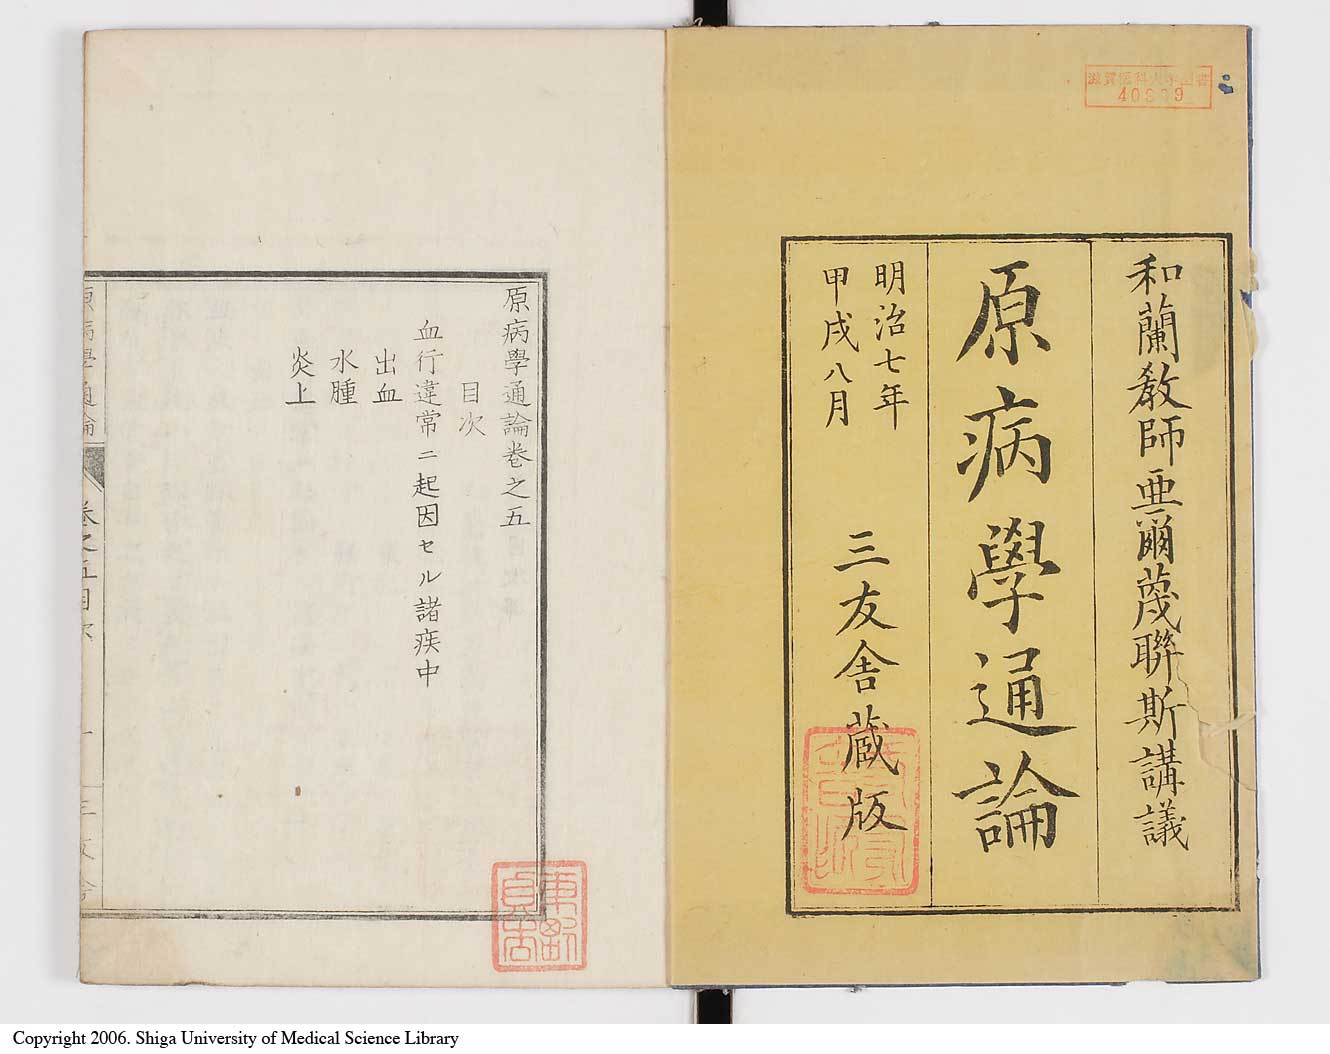 和蘭教師亜爾蔑聯斯講議
原病學通論
明治七年
甲戌八月
三友舎蔵版
滋賀医科大学図書
原病學通論巻之五
目次
血行違常ニ起因セル諸疾中
出血
水腫
炎上
原病學通論
巻之五目次
一
三友舎
Copyright 2006. Shiga University of Medical Science Library